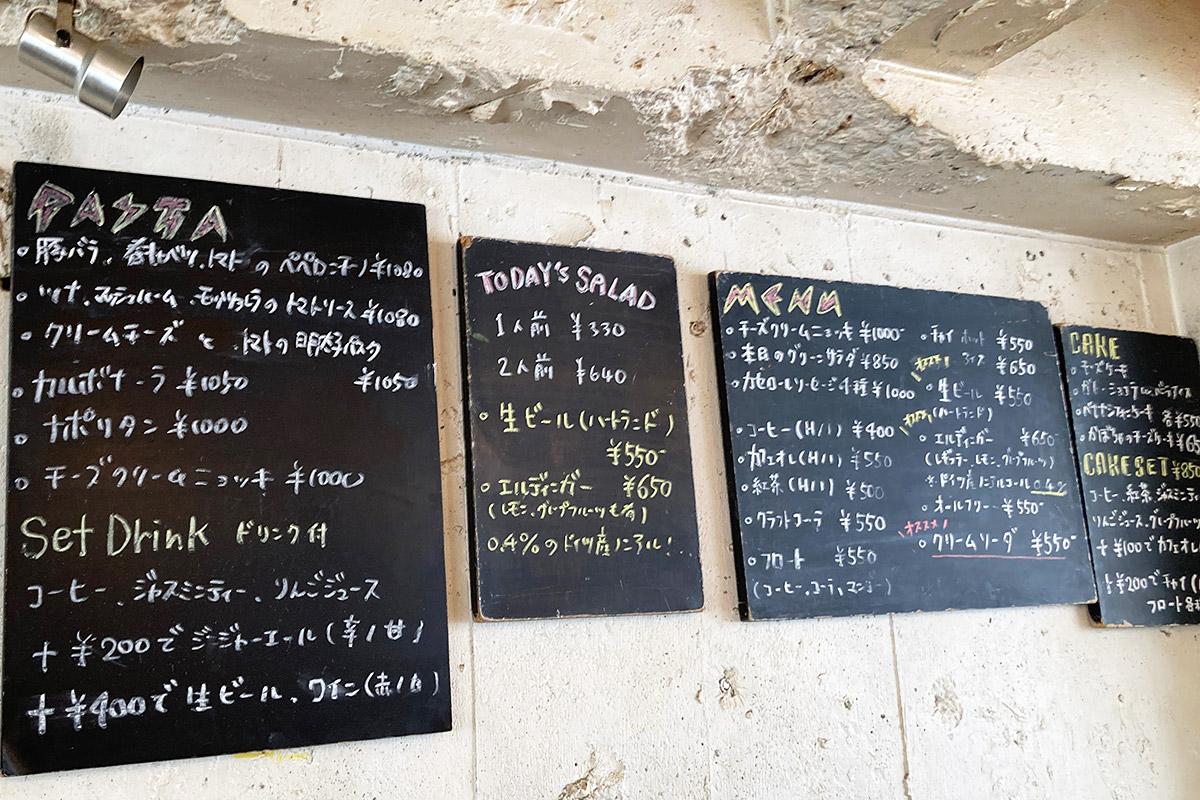 PASTA
豚バラ、春キャベツ、トマトのペペロンチーノ ¥1080
ツナ、マッシュルーム、モッツァレラのトマトソース ¥1080
クリームチーズとトマトの明太子パスタ
¥1050
カルボナーラ ¥1050
ナポリタン ¥1000
チーズクリームニョッキ ¥1000
Set Drink ドリンク付
コーヒー、ジャスミンティー、りんごジュース
+¥200でジンジャーエール(辛/甘)
+¥400で生ビール、ワイン(赤/白)
TODAY'S SALAD
1人前 ¥330
2人前 ¥640
生ビール(ハートランド)
¥550-
エルディンガー ¥650
(レモン、グレープフルーツも有)
0.4%のドイツ産ノンアル!
MENU
チーズクリームニョッキ ¥1000-
本日のグリーンサラダ ¥850
カセロールソーセージ4種 ¥1000
コーヒー(H/I) ¥400
カフェオレ(H/I) ¥550
紅茶(H/I) ¥500
クラフトコーラ ¥550
フロート ¥550
(コーヒー、コーラ、)
チャイ ホット ¥550
アイス ¥650
オススメ!
生ビール ¥550
(ハートランド)
オススメ!
エルディンガー ¥650-
(レギュラー、レモン、グレープフルーツ)
※ドイツ産ノンアルコール 0.4%
オールフリー ¥550-
オススメ!
クリームソーダ ¥550-
CAKE
チーズケーキ
ガトーショコラ
バナナシフォンケーキ 各¥550
かぼちゃのチーズケーキ ¥65
CAKE SET ¥850
コーヒー、紅茶、ジャスミンテ
りんごジュース、グレープフルーツ
+¥100でカフェオレ(
+¥200でチャイ(
フロート各